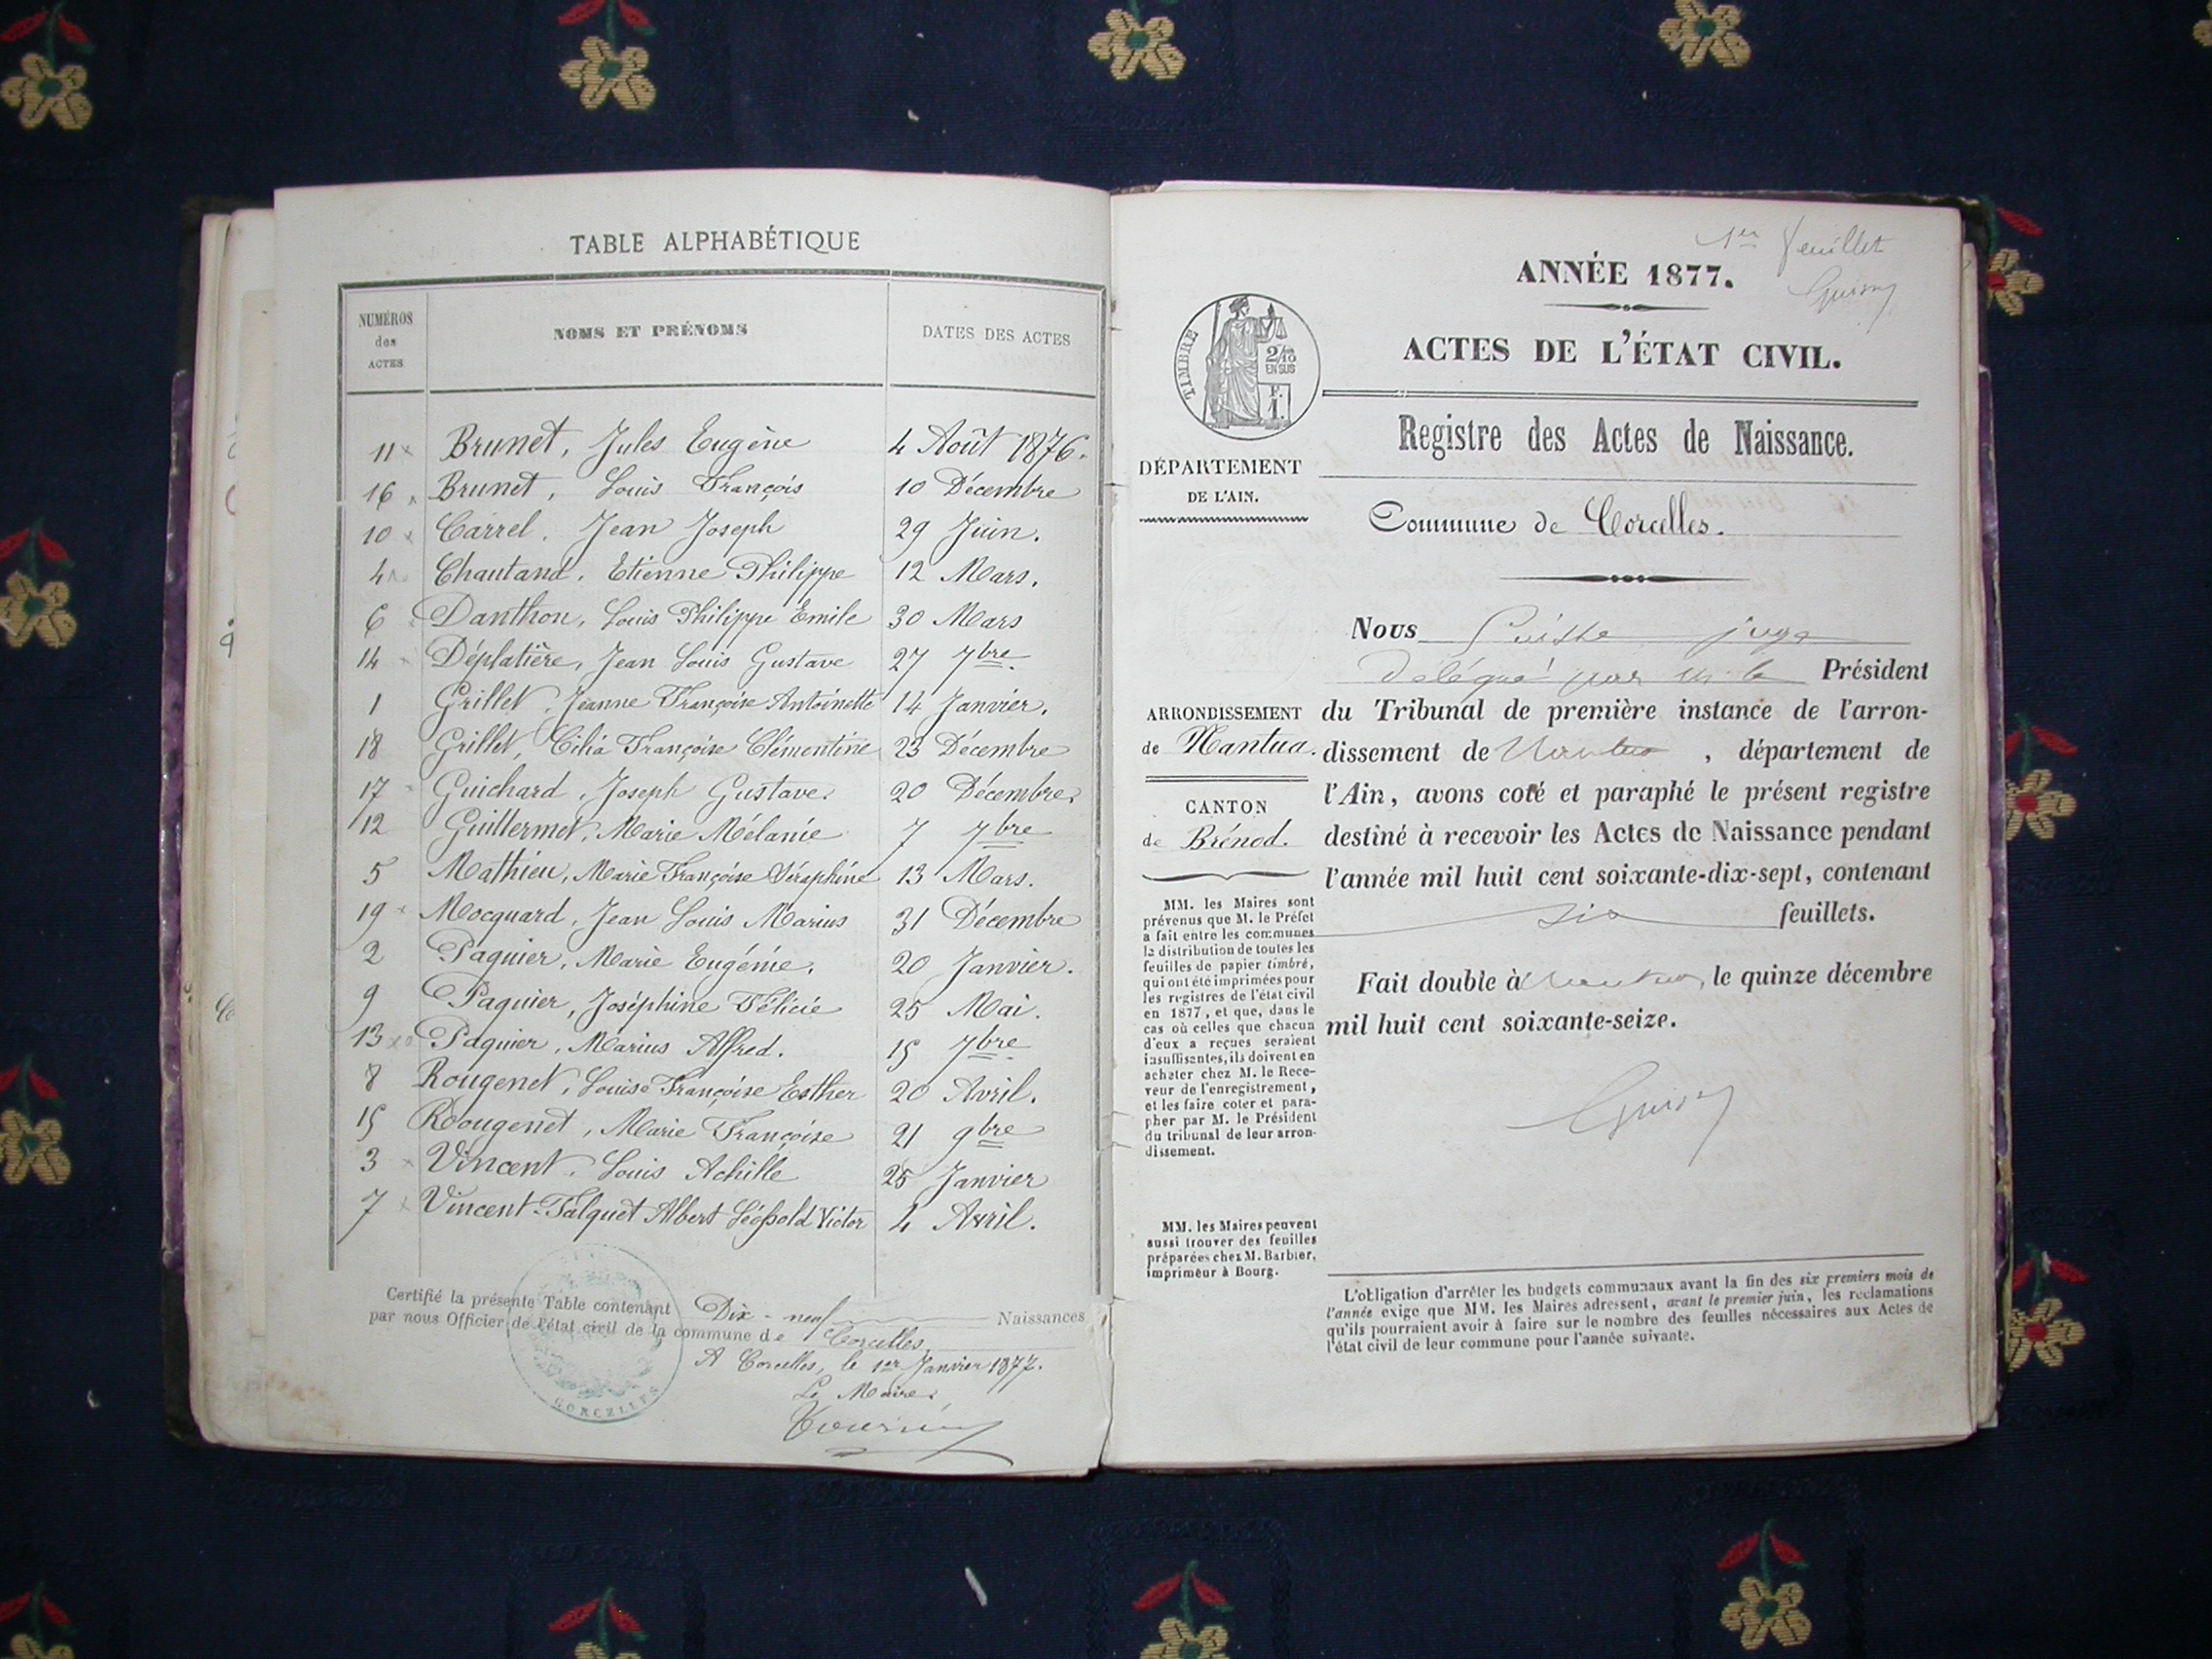 TABLE ALPHABÉTIQUE
NUMÉROS
des
ACTES
NOMS ET PRÉNOMS
DATES DES ACTES
11 Brunet, Jules Eugène 4 Août 1876.
16 Brunet, Louis François 10 Décembre
10 Carrel, Jean Joseph 29 Juin.
4 Chautand, Etienne Philippe 12 Mars.
6 Danthon, Louis Philippe Emile 30 Mars
14 Déplatière, Jean Louis Gustave 27 7bre
1 Grillet, Jeanne Françoise Antoinette 14 Janvier.
18 Grillet, Cilia Françoise Clémentine 23 Décembre
17 Guichard, Joseph Gustave. 20 Décembre.
12 Guillermet, Marie Mélanie 7 7bre
5 Mathieu, Marie Françoise Séraphine 13 Mars.
19 Mocquard, Jean Louis Marius 31 Décembre
2 Paquier, Marie Eugénie, 20 Janvier.
9 Paquier, Joséphine Félicie 25 Mai.
13 Paquier, Marius Alfred. 15 7bre
8 Rougenet, Louise Françoise Esther 20 Avril.
15 Rougenet, Marie Françoise 21 9bre
3 Vincent, Louis Achille 25 Janvier
7 Vincent-Falquet Albert Léopold Victor 4 Avril.
Certifié la présente Table contenant Dix-neuf Naissances
par nous Officier de l'état civil de la commune de Corcelles
A Corcelles, le 1er Janvier 1877.
Le Maire.
CORCELLES
1er feuillet
ANNÉE 1877.
ACTES DE L'ÉTAT CIVIL.
TIMBRE
2/10
EN SUS
F.
1.
Registre des Actes de Naissance.
DÉPARTEMENT
DE L'AIN.
Commune de Corcelles.
Nous juge
délégué par M. le Président
ARRONDISSEMENT
de Nantua.
du Tribunal de première instance de l'arron-
dissement de Nantua, département de
l'Ain, avons coté et paraphé le présent registre
destiné à recevoir les Actes de Naissance pendant
l'année mil huit cent soixante-dix-sept, contenant
six feuillets.
CANTON
de Brénod.
MM. les Maires sont
prévenus que M. le Préfet
a fait entre les communes
la distribution de toutes les
feuilles de papier timbré,
qui ont été imprimées pour
les registres de l'état civil
en 1877, et que, dans le
cas où celles que chacun
d'eux a reçues seraient
insuffisantes, ils doivent en
acheter chez M. le Rece-
veur de l'enregistrement,
et les faire coter et para-
pher par M. le Président
du tribunal de leur arron-
dissement.
Fait double à Nantua, le quinze décembre
mil huit cent soixante-seize.
MM. les Maires peuvent
aussi trouver des feuilles
préparées chez M. Barbier,
imprimeur à Bourg.
L'obligation d'arrêter les budgets communaux avant la fin des six premiers mois de
l'année exige que MM. les Maires adressent, avant le premier juin, les reclamations
qu'ils pourraient avoir à faire sur le nombre des feuilles nécessaires aux Actes de
l'état civil de leur commune pour l'année suivante.